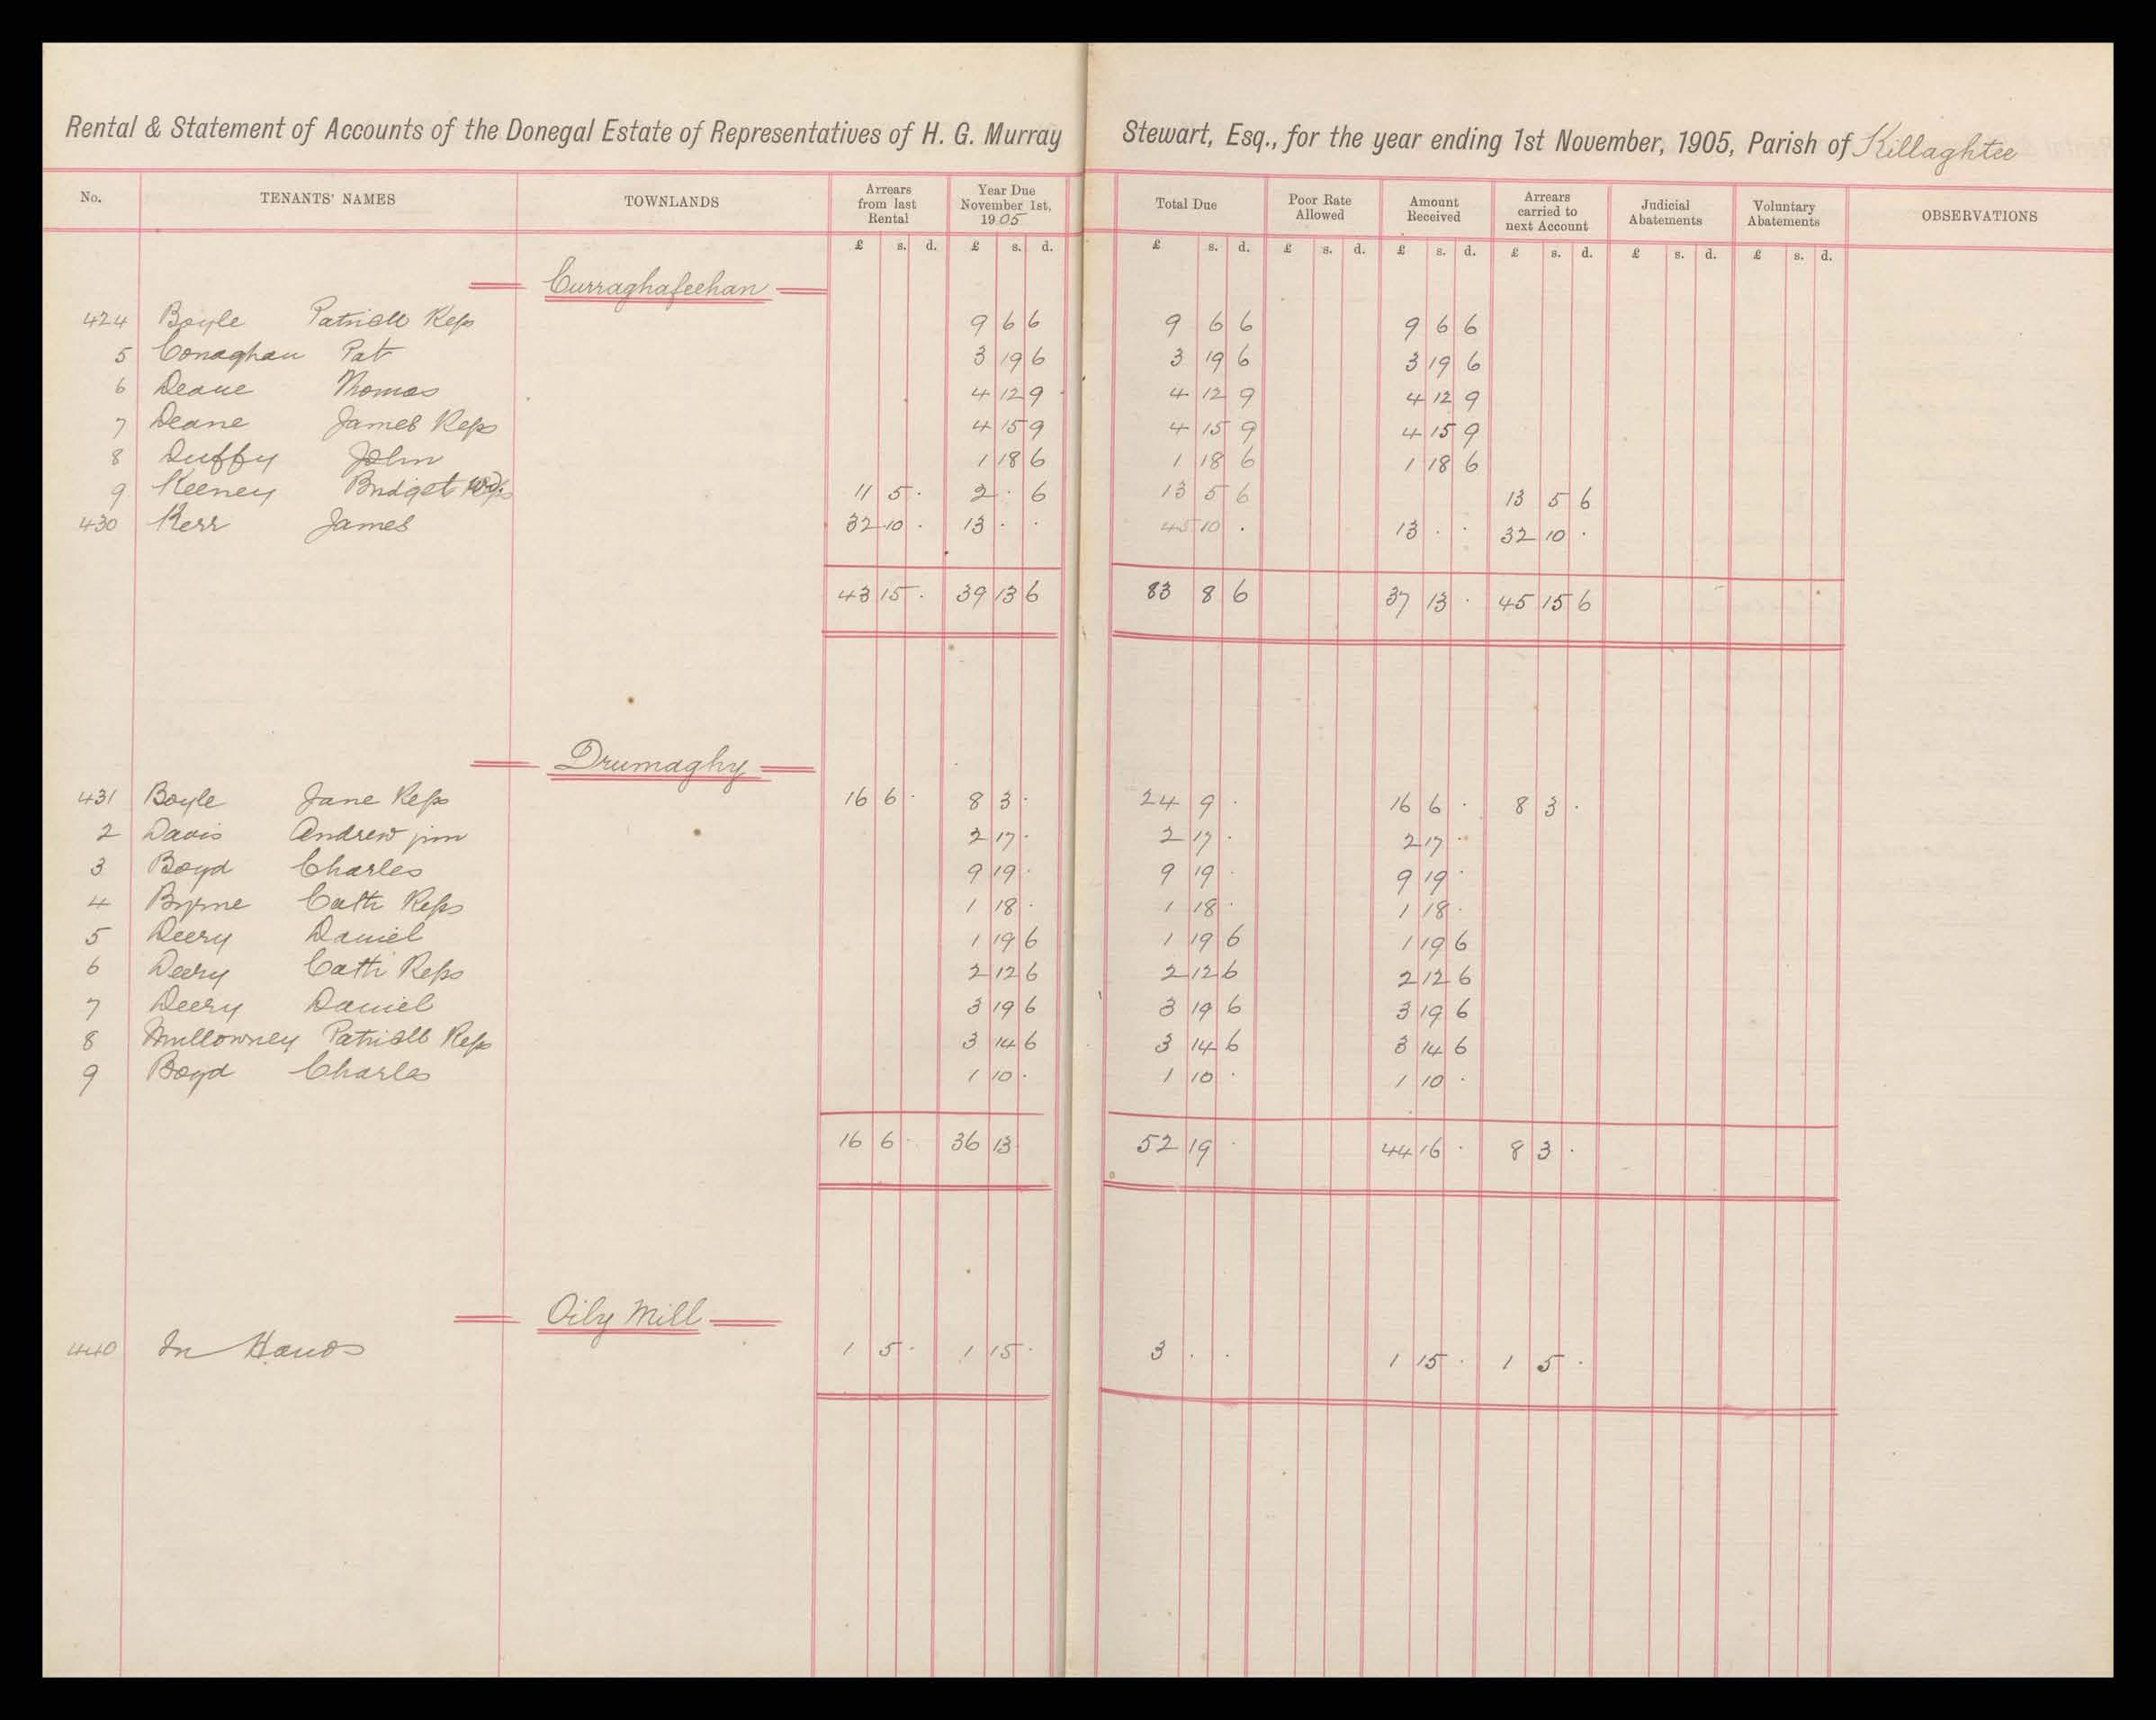 Rental & Statement of Accounts of the Donegal Estate of Representatives of H. G. Murray Stewart, Esq., for the year ending 1st November, 1905, Parish of Killaghtee
No. TENANTS' NAMES TOWNLANDS Arrears from last Rental Year Due November 1st, 1905 Total Due Poor Rate Allowed Amount Received Arrears carried to next Account Judicial Abatements Voluntary Abatements OBSERVATIONS
£ s. d. £ s. d. £ s. d. £ s. d. £ s. d. £ s. d. £ s. d. £ s. d.
Curraghafeehan
424 Boyle Patrick Reps 9 6 6 9 6 6 9 6 6
5 Conaghan Pat 3 19 6 3 19 6 3 19 6
6 Deane Thomas 4 12 9 4 12 9 4 12 9
7 Deane James Reps 4 15 9 4 15 9 4 15 9
8 Duffy John 1 18 6 1 18 6 1 18 6
9 Keeney Bridget 11 5 . 2 . 6 13 5 6 13 5 6
430 Kerr James 32 10 . 13 . . 45 10 . 13 . . 32 10 .
43 15 . 39 13 6 83 8 6 37 13 . 45 15 6
Drumaghy
431 Boyle Jane Reps 16 6 . 8 3 . 24 9 . 16 6 . 8 3 .
2 Davis Andrew jun 2 17 . 2 17 . 2 17 .
3 Boyd Charles 9 19 . 9 19 . 9 19 .
4 Byrne Cath Reps 1 18 . 1 18 . 1 18 .
5 Deery Daniel 1 19 6 1 19 6 1 19 6
6 Deery Cath Reps 2 12 6 2 12 6 2 12 6
7 Deery Daniel 3 19 6 3 19 6 3 19 6
8 Mullowney Patrick Reps 3 14 6 3 14 6 3 14 6
9 Boyd Charles 1 10 . 1 10 . 1 10 .
16 6 . 36 13 52 19 . 44 16 . 8 3 .
Oily Mill
440 In Hands 1 5 . 1 15 . 3 . . 1 15 . 1 5 .